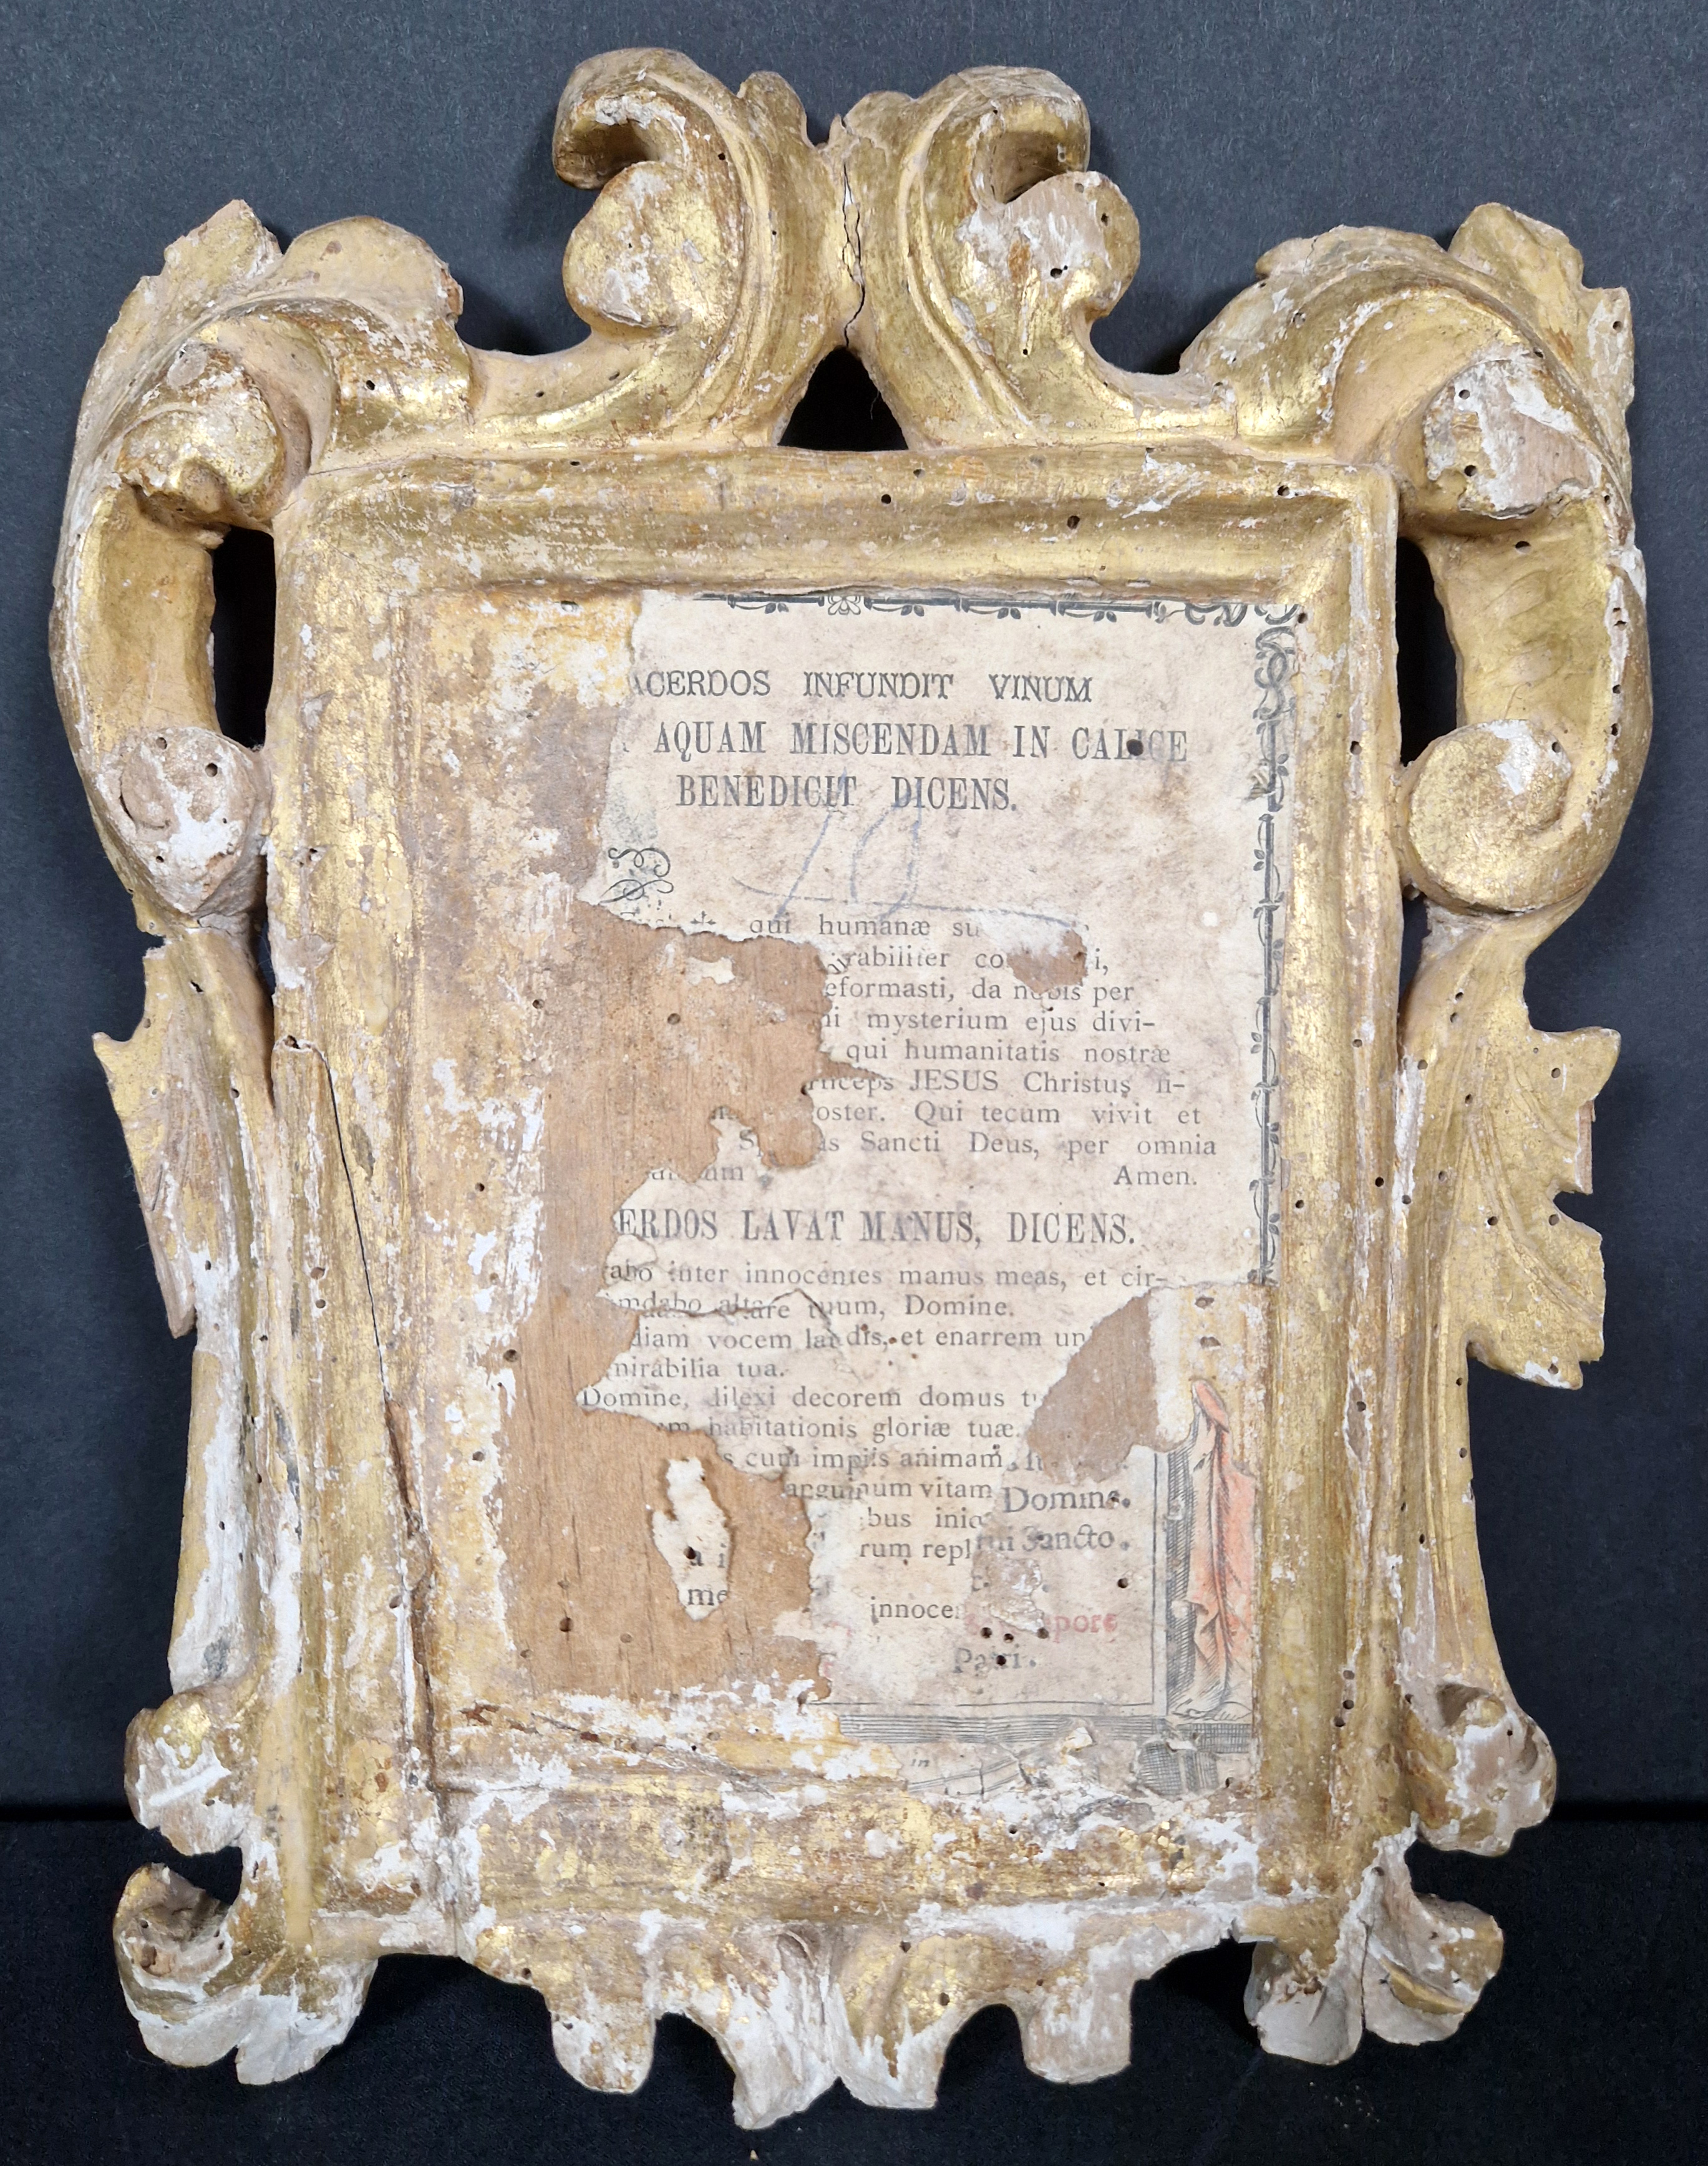 ACERDOS INFUNDIT VINUM
AQUAM MISCENDAM IN CALICE
BENEDICIT DICENS.
qui humanæ su
rabiliter co i,
eformasti, da nobis per
ni mysterium ejus divi-
qui humanitatis nostræ
rticeps JESUS Christus fi-
oster. Qui tecum vivit et
S as Sancti Deus, per omnia
Amen.
ERDOS LAVAT MANUS, DICENS.
abo inter innocentes manus meas, et cir-
mdabo altare tuum, Domine.
diam vocem laudis, et enarrem un
mirabilia tua.
Domine, dilexi decorem domus tu
m habitationis gloriæ tuæ.
s cum impiis animam
anguinum vitam Domine.
bus iniq
tui Sancto.
a i rum repl
me innoce
pore
Patri.
in